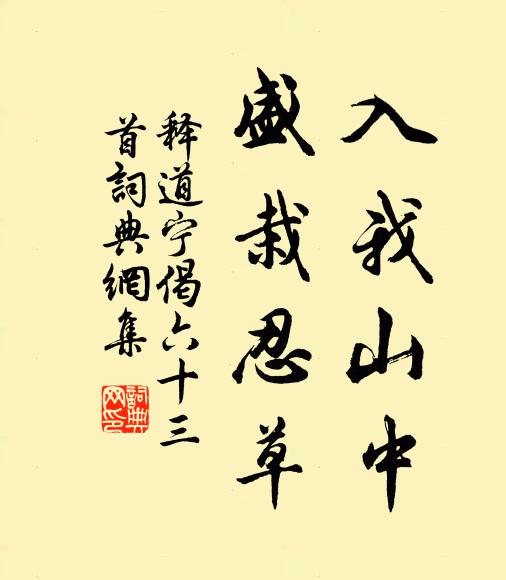 入我山中
盛栽忍草
释道宁偈六十三
首詞典網集
詞典
网印